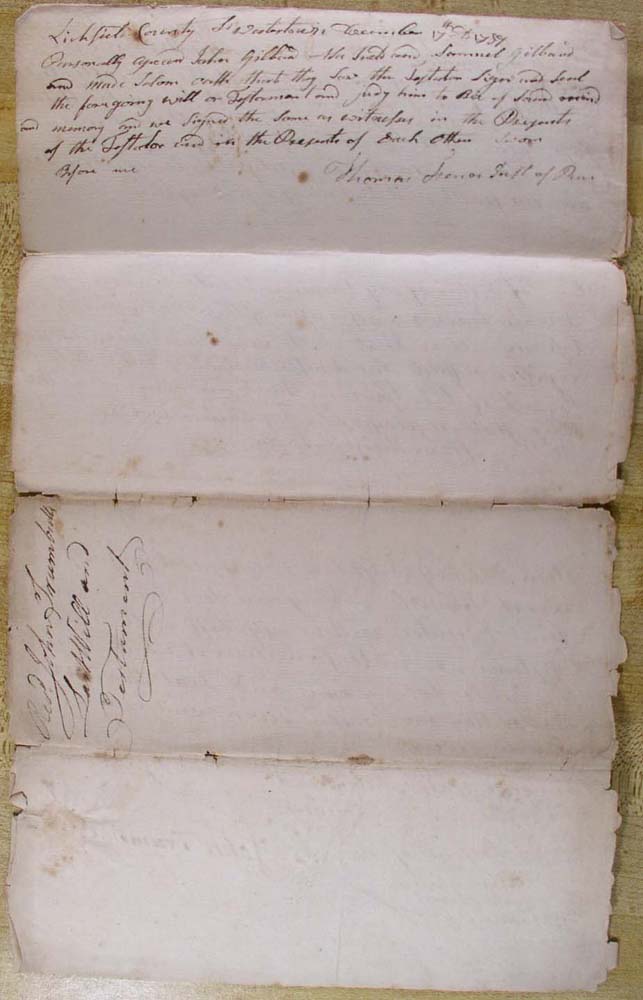 Lichfield County Ss Watertown December 17th AD 1787
Personally apeared John Gibbud Noe Judd and Samuel Gibbud
and made Solom oath that they Saw the Testator Sign and Seal
the foregoing will or Testament and Judg him to Bee of Sound mind
and memory and we Signed the Same as witnesses in the Presents
of the Testator and in the Presents of Each Other Sworn
Before me
Thomas Just of Peace
Revd John Trumbulls
Last Will and
Testament